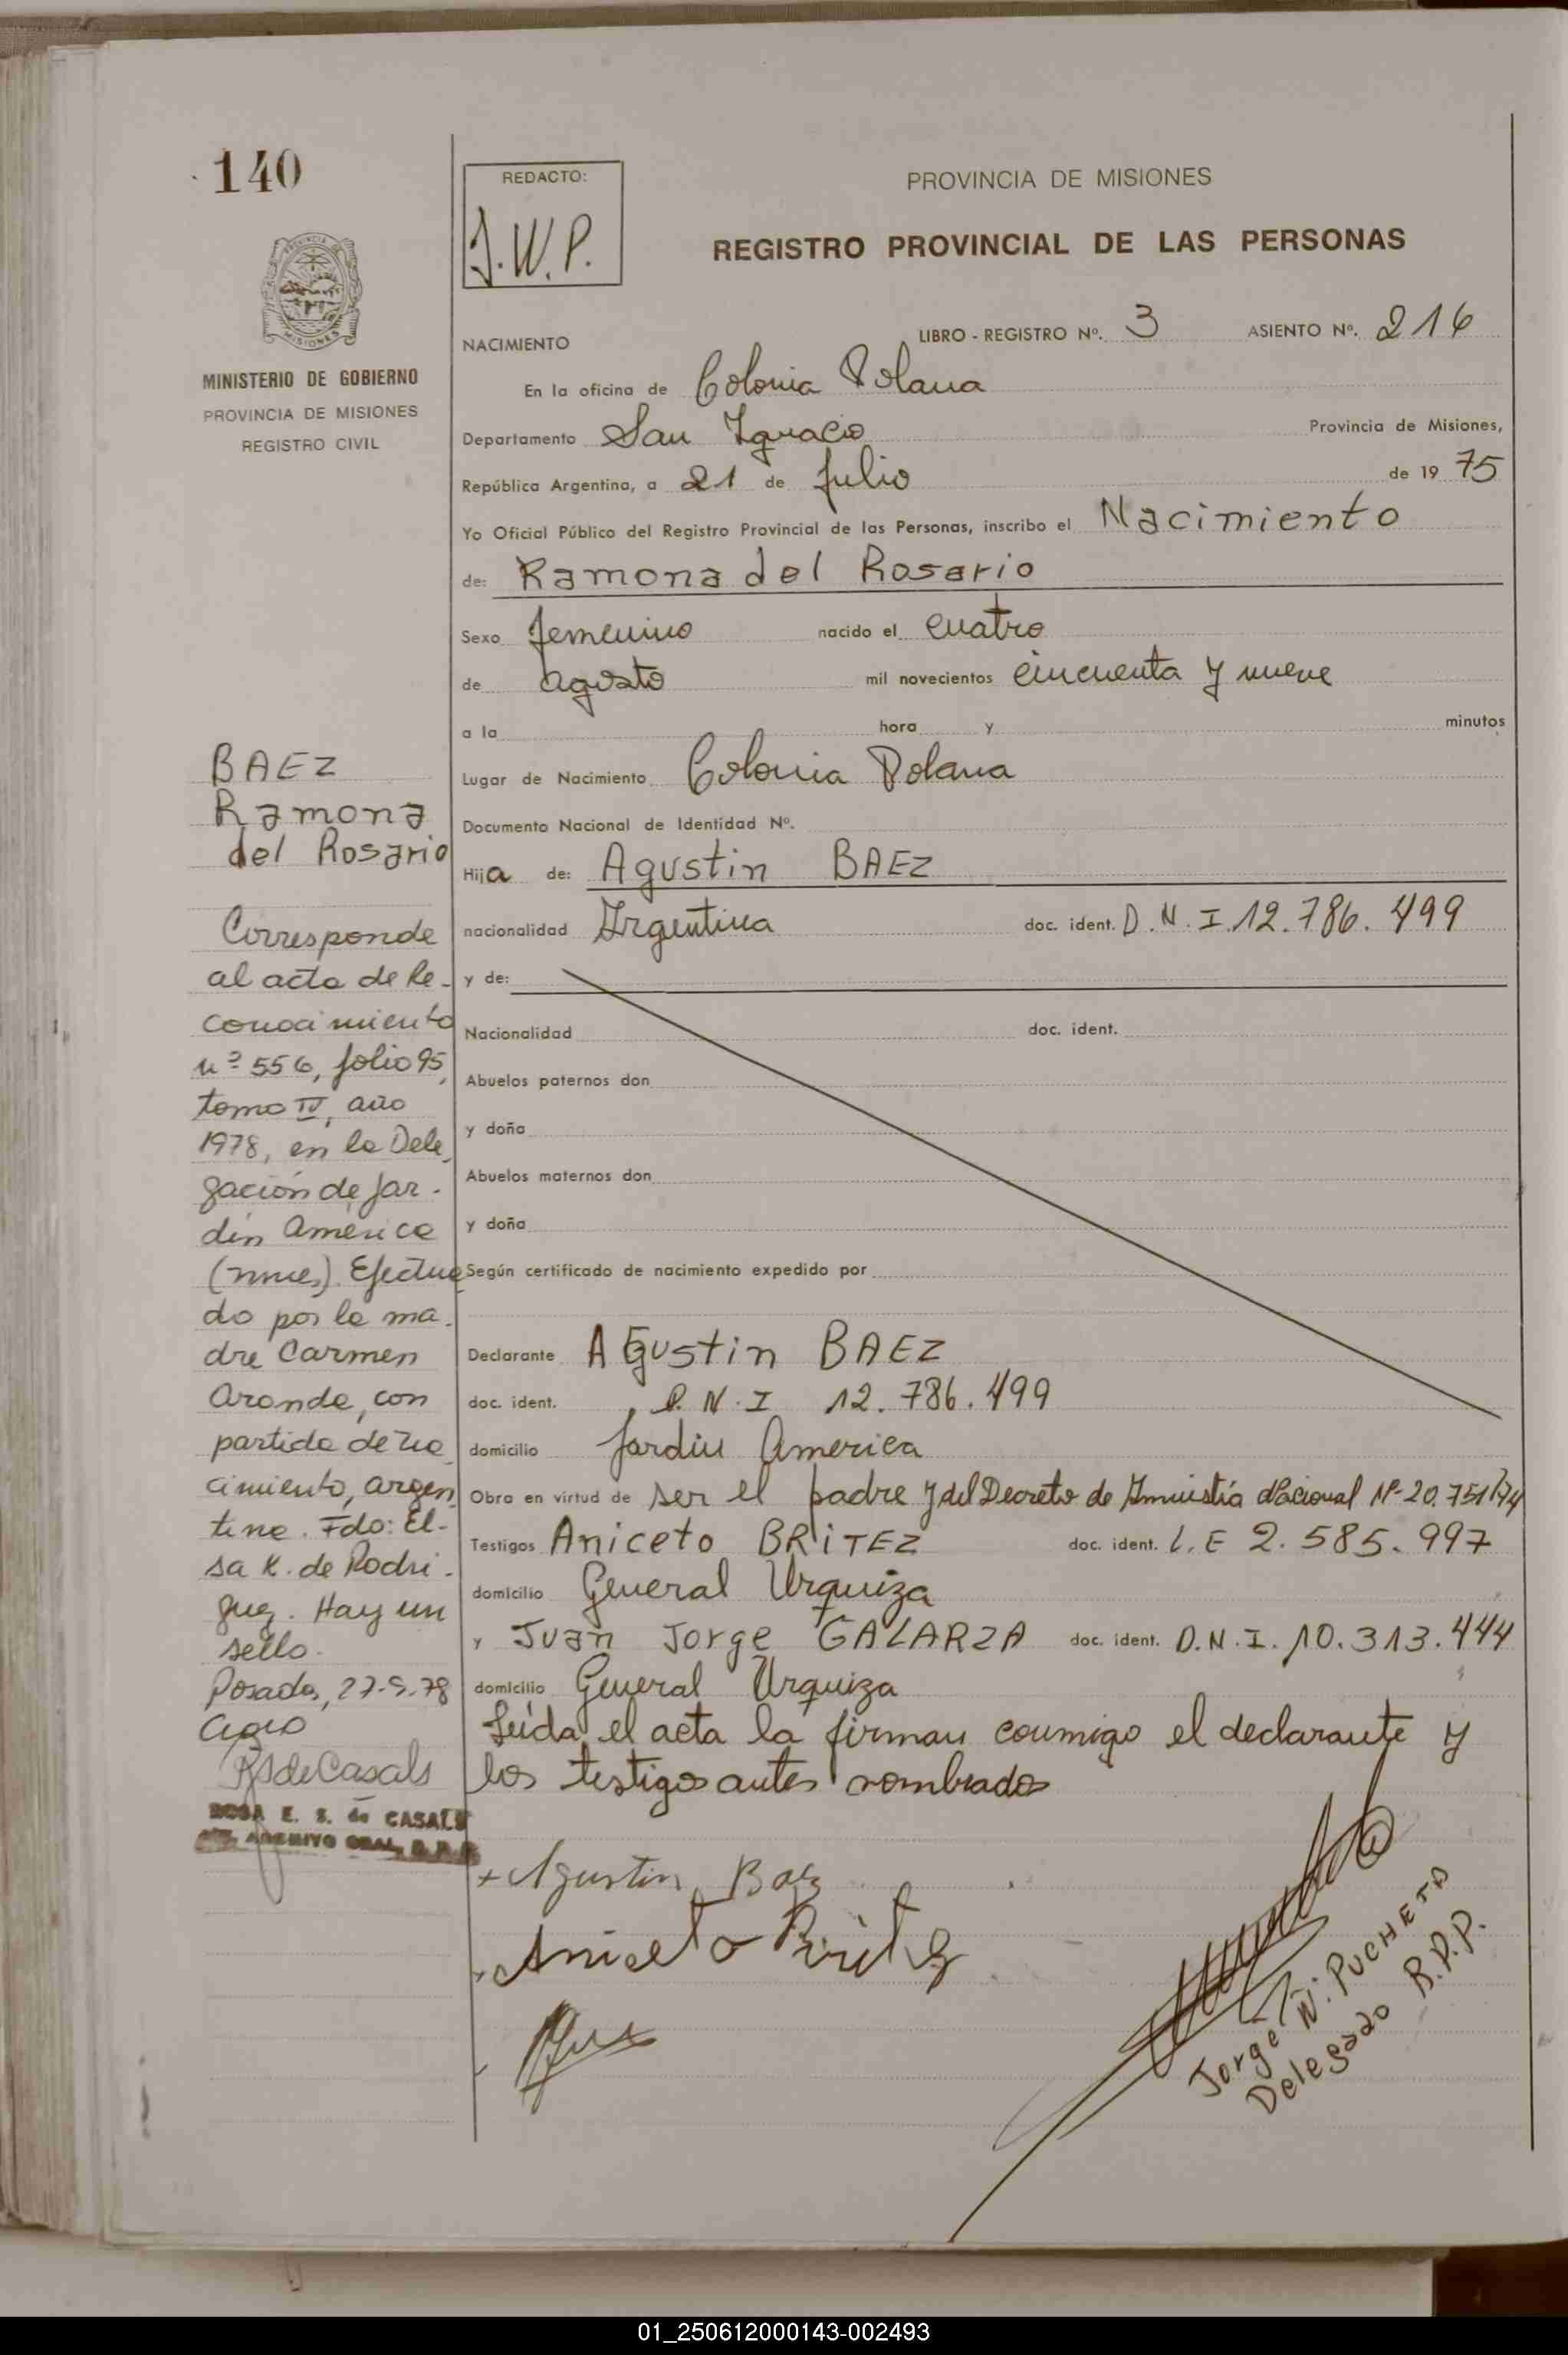 140
MINISTERIO DE GOBIERNO
PROVINCIA DE MISIONES
REGISTRO CIVIL
BAEZ
Ramona
del Rosario
Corresponde
al acta de Re-
conocimiento
nº 556, folio 95,
tomo IV, año
1978, en la Dele
gación de Jar-
dín América
(mnes). Efectua
do por la ma-
dre Carmen
Aranda, con
partida de na
cimiento, argen
tina. Fdo: El-
sa K. de Rodri-
guez. Hay un
sello.
Posadas, 27-9-78
RSdeCasals
ROSA E. S. de CASALS
ARCHIVO GRAL.
REDACTO:
J.W.P.
PROVINCIA DE MISIONES
REGISTRO PROVINCIAL DE LAS PERSONAS
NACIMIENTO LIBRO - REGISTRO Nº. 3 ASIENTO Nº. 216
En la oficina de Colonia Polana
Departamento San Ignacio Provincia de Misiones,
República Argentina, a 21 de Julio de 19 75
Yo Oficial Público del Registro Provincial de las Personas, inscribo el Nacimiento
de: Ramona del Rosario
Sexo femenino nacido el cuatro
de agosto mil novecientos cincuenta y nueve
a la hora y minutos
Lugar de Nacimiento Colonia Polana
Documento Nacional de Identidad Nº.
Hija de: Agustin BAEZ
nacionalidad Argentina doc. ident. D.N.I. 12.786.499
y de:
Nacionalidad doc. ident.
Abuelos paternos don
y doña
Abuelos maternos don
y doña
Según certificado de nacimiento expedido por
Declarante AGustin BAEZ
doc. ident. D.N.I 12.786.499
domicilio Jardin America
Obra en virtud de ser el padre y del Decreto de Amnistia Nacional Nº 20.751/74
Testigos Aniceto BRiTEZ doc. ident. L.E 2.585.997
domicilio General Urquiza
y Juan Jorge GALARZA doc. ident. D.N.I. 10.313.444
domicilio General Urquiza
Leida el acta la firman conmigo el declarante y
los testigos antes nombrados
Agustin Baez
Aniceto Britez
Jorge N. PUCHETA
Delegado R.P.P.
01_250612000143-002493